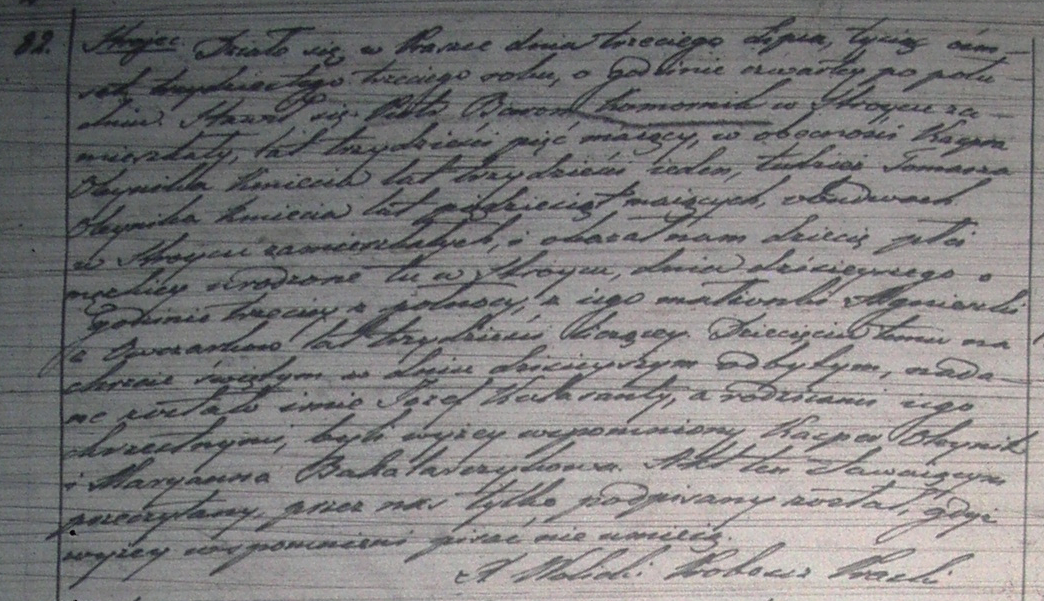 82. Strojec. Działo się w Praszce dnia trzeciego Lipca, tysiąc ośm-
set trzydziestego trzeciego roku, o godzinie czwartey po połu-
dniu. Stawił się Piotr Baron komornik w Stroycu za-
mieszkały, lat trzydzieści pięć maiący, w obecności Kacpra
Oleynika kmiecia lat trzydzieści ieden, tudzież Tomasza
Oleynika kmiecia lat pięćdziesiąt maiących, obudwóch
w Stroycu zamieszkałych, i okazał nam dziecię płci
męzkiey urodzone tu w Stroycu, dnia dzisieyszego o
godzinie trzeciey z północy, z iego małżonki Agnieszki
z lat trzydzieści liczącey. Dziecięciu temu na
chrzcie świętym w dniu dzisieyszym odbytym, nada-
ne zostało imie Józef Kalasanty, a rodzicami iego
chrzestnymi, byli wyżey wspomniony Kacper Oleynik
i Maryanna Bakalarczykowa. Akt ten stawaiącym
przeczytany, przez nas tylko podpisany został, gdyż
wyżey wspomnieni pisać nie umieią.
X Wolicki Proboszcz Praszki